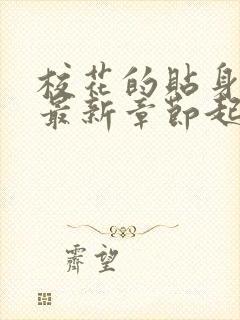 校花的貼身
最新章節起
霽望